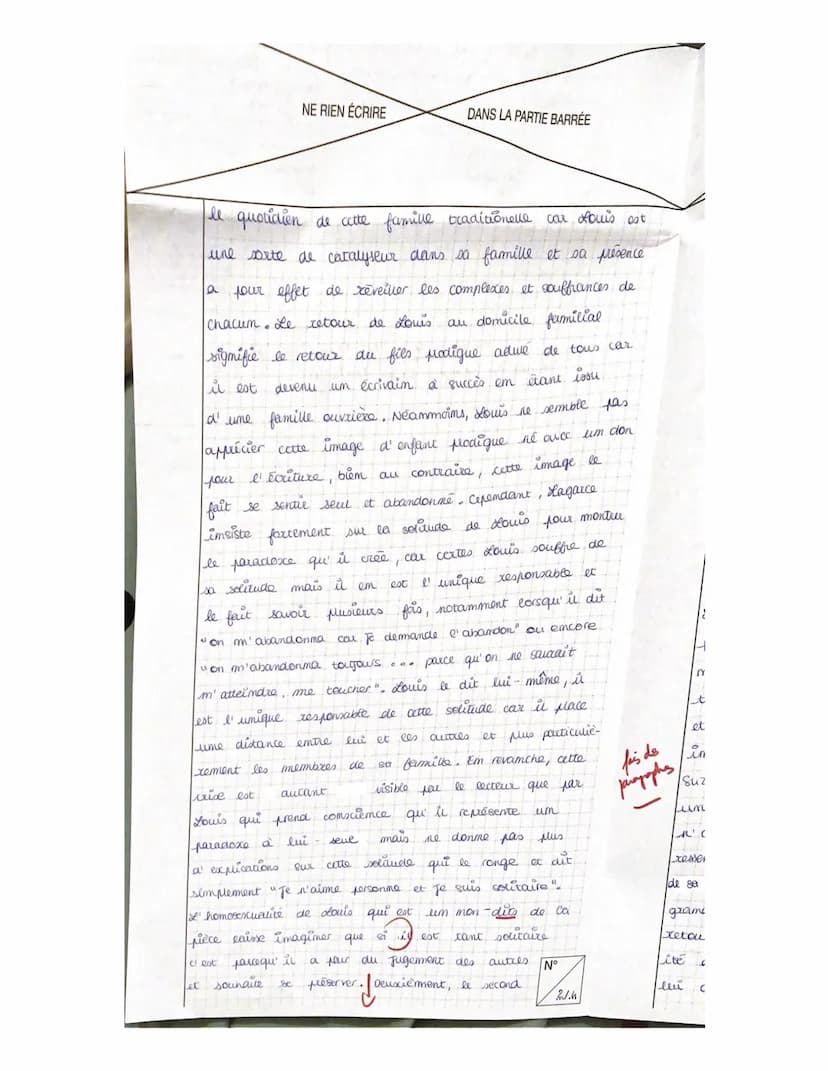 NE RIEN ÉCRIRE DANS LA PARTIE BARRÉE
le quotidien de cette famille traditionelle car Louis est
une sorte de catalyseur dans sa famille et sa présence
a pour effet de réveiller les complexes et souffrances de
chacun. Le retour de Louis au domicile familial
signifie le retour du fils prodigue adulé de tous car
il est devenu un écrivain à succès en étant issu
d'une famille ouvrière. Néammoins, Louis ne semble pas
apprécier cette image d'enfant prodigue né avec un don
pour l'écriture, bien au contraire, cette image le
fait se sentir seul et abandonné. Cependant, Lagarce
insiste fortement sur la solitude de Louis pour montrer
le paradoxe qu'il crée, car certes Louis souffre de
sa solitude mais il en est l'unique responsable et
le fait savoir plusieurs fois, notamment lorsqu'il dit
"on m'abandonna car je demande l'abandon" ou encore
"on m'abandonna toujours ... parce qu'on ne saurait
m'atteindre, me toucher". Louis le dit lui-même, il
est l'unique responsable de cette solitude car il place
une distance entre lui et les autres et plus particuliè-
rement les membres de sa famille. En revanche, cette
crise est autant visible par le lecteur que par
Louis qui prend conscience qu'il représente un
paradoxe à lui-seul mais ne donne pas plus
d'explications sur cette solitude qui le ronge et dit
simplement "Je n'aime personne et je suis solitaire".
L'homosexualité de Louis qui est un non-dits de la
pièce laisse imaginer que si il est tant solitaire
c'est parcequ'il a peur du jugement des autres
et souhaite se préserver. Deuxièmement, le second
fais des
paragraphes
N°
2/4
et
in
suz
un
n'
resser
de sa
gram
retou
ité
lui